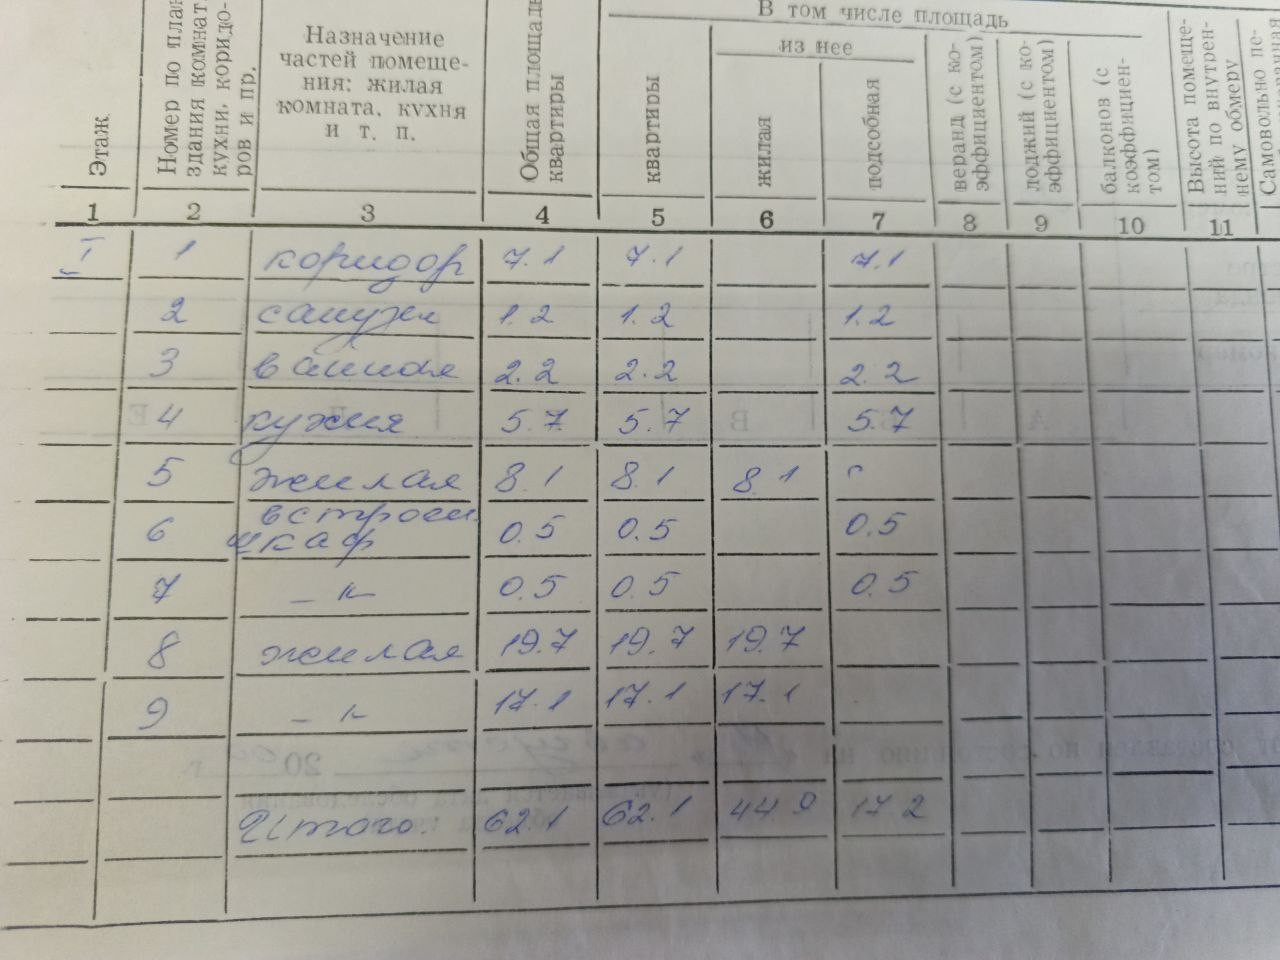 В том числе площадь
из нее
Этаж
Номер по
здания комнат,
кухни, коридо-
ров и пр.
Назначение
частей помеще-
ния: жилая
комната, кухня
и т. п.
Общая площадь
квартиры
квартиры
жилая
подсобная
веранд (с ко-
эффициентом)
лоджий (с ко-
эффициентом)
балконов (с
коэффициен-
том)
Высота помеще-
ний по внутрен-
нему обмеру
Самовольно
1 2 3 4 5 6 7 8 9 10 11
I 1 коридор 7.1 7.1 7.1
2 санузел 1.2 1.2 1.2
3 ванная 2.2 2.2 2.2
4 кухня 5.7 5.7 5.7
5 жилая 8.1 8.1 8.1
встроен.
6 шкаф 0.5 0.5 0.5
7 –"– 0.5 0.5 0.5
8 жилая 19.7 19.7 19.7
9 –"– 17.1 17.1 17.1
Итого: 62.1 62.1 44.9 17.2